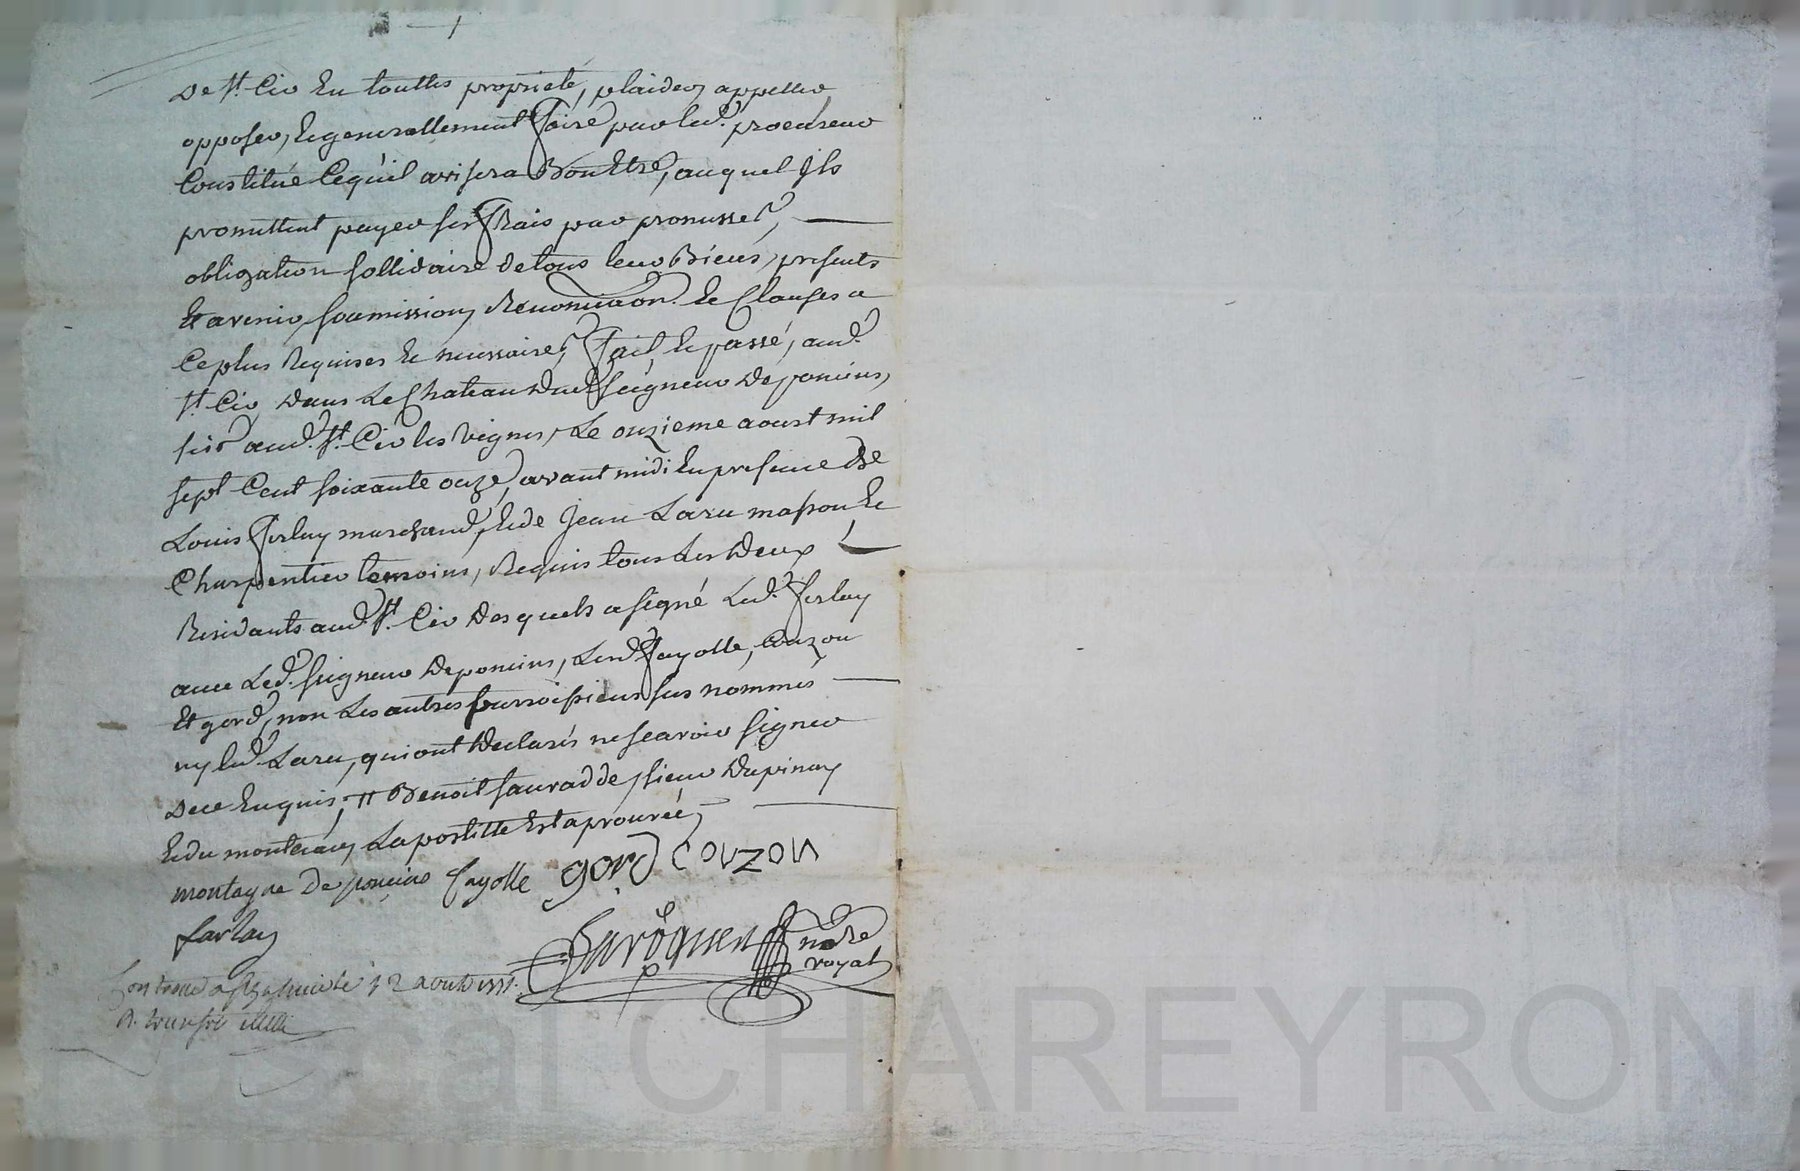 De St. Cir En touttes propriété, plaider, appeller,
opposer, Et generallement faire par led. procureur
Constitué Ce qu'il avisera Bon Etre, auquel Ils
promettent payer ses frais par promesse,
obligation sollidaire de tous leur Biens, presents
Et avenir, soumission, Renonciaõn. Et Clauses a
Ce plus Requises Et necessaires, fait, Et passé, aud.
St. Cir, Dans Le Chateau Dud. seigneur De poncins,
sis aud. St. Cir les vignes, Le onzieme aoust mil
sept Cent soixante onze, avant midi En presence De
Louis ferlay marchand, Et de Jean Laru masson Et
Charpentier temoins, Requis tous Les Deux
Residants aud. St. Cir Desquels a signé Led. ferlay
avec Led. seigneur De poncins, Lesd. fayolle, Couzon
Et gord, non Les autres parroissiens sus nommés
ny led. Laru, qui ont Declarés ne scavoir signer
De ce Enquis, Benoit
Et du montceau, La postille Est aprouvée,
montagne De poncins fayolle gord COUZON
farlay
notre
royal
12 aoust 1771.